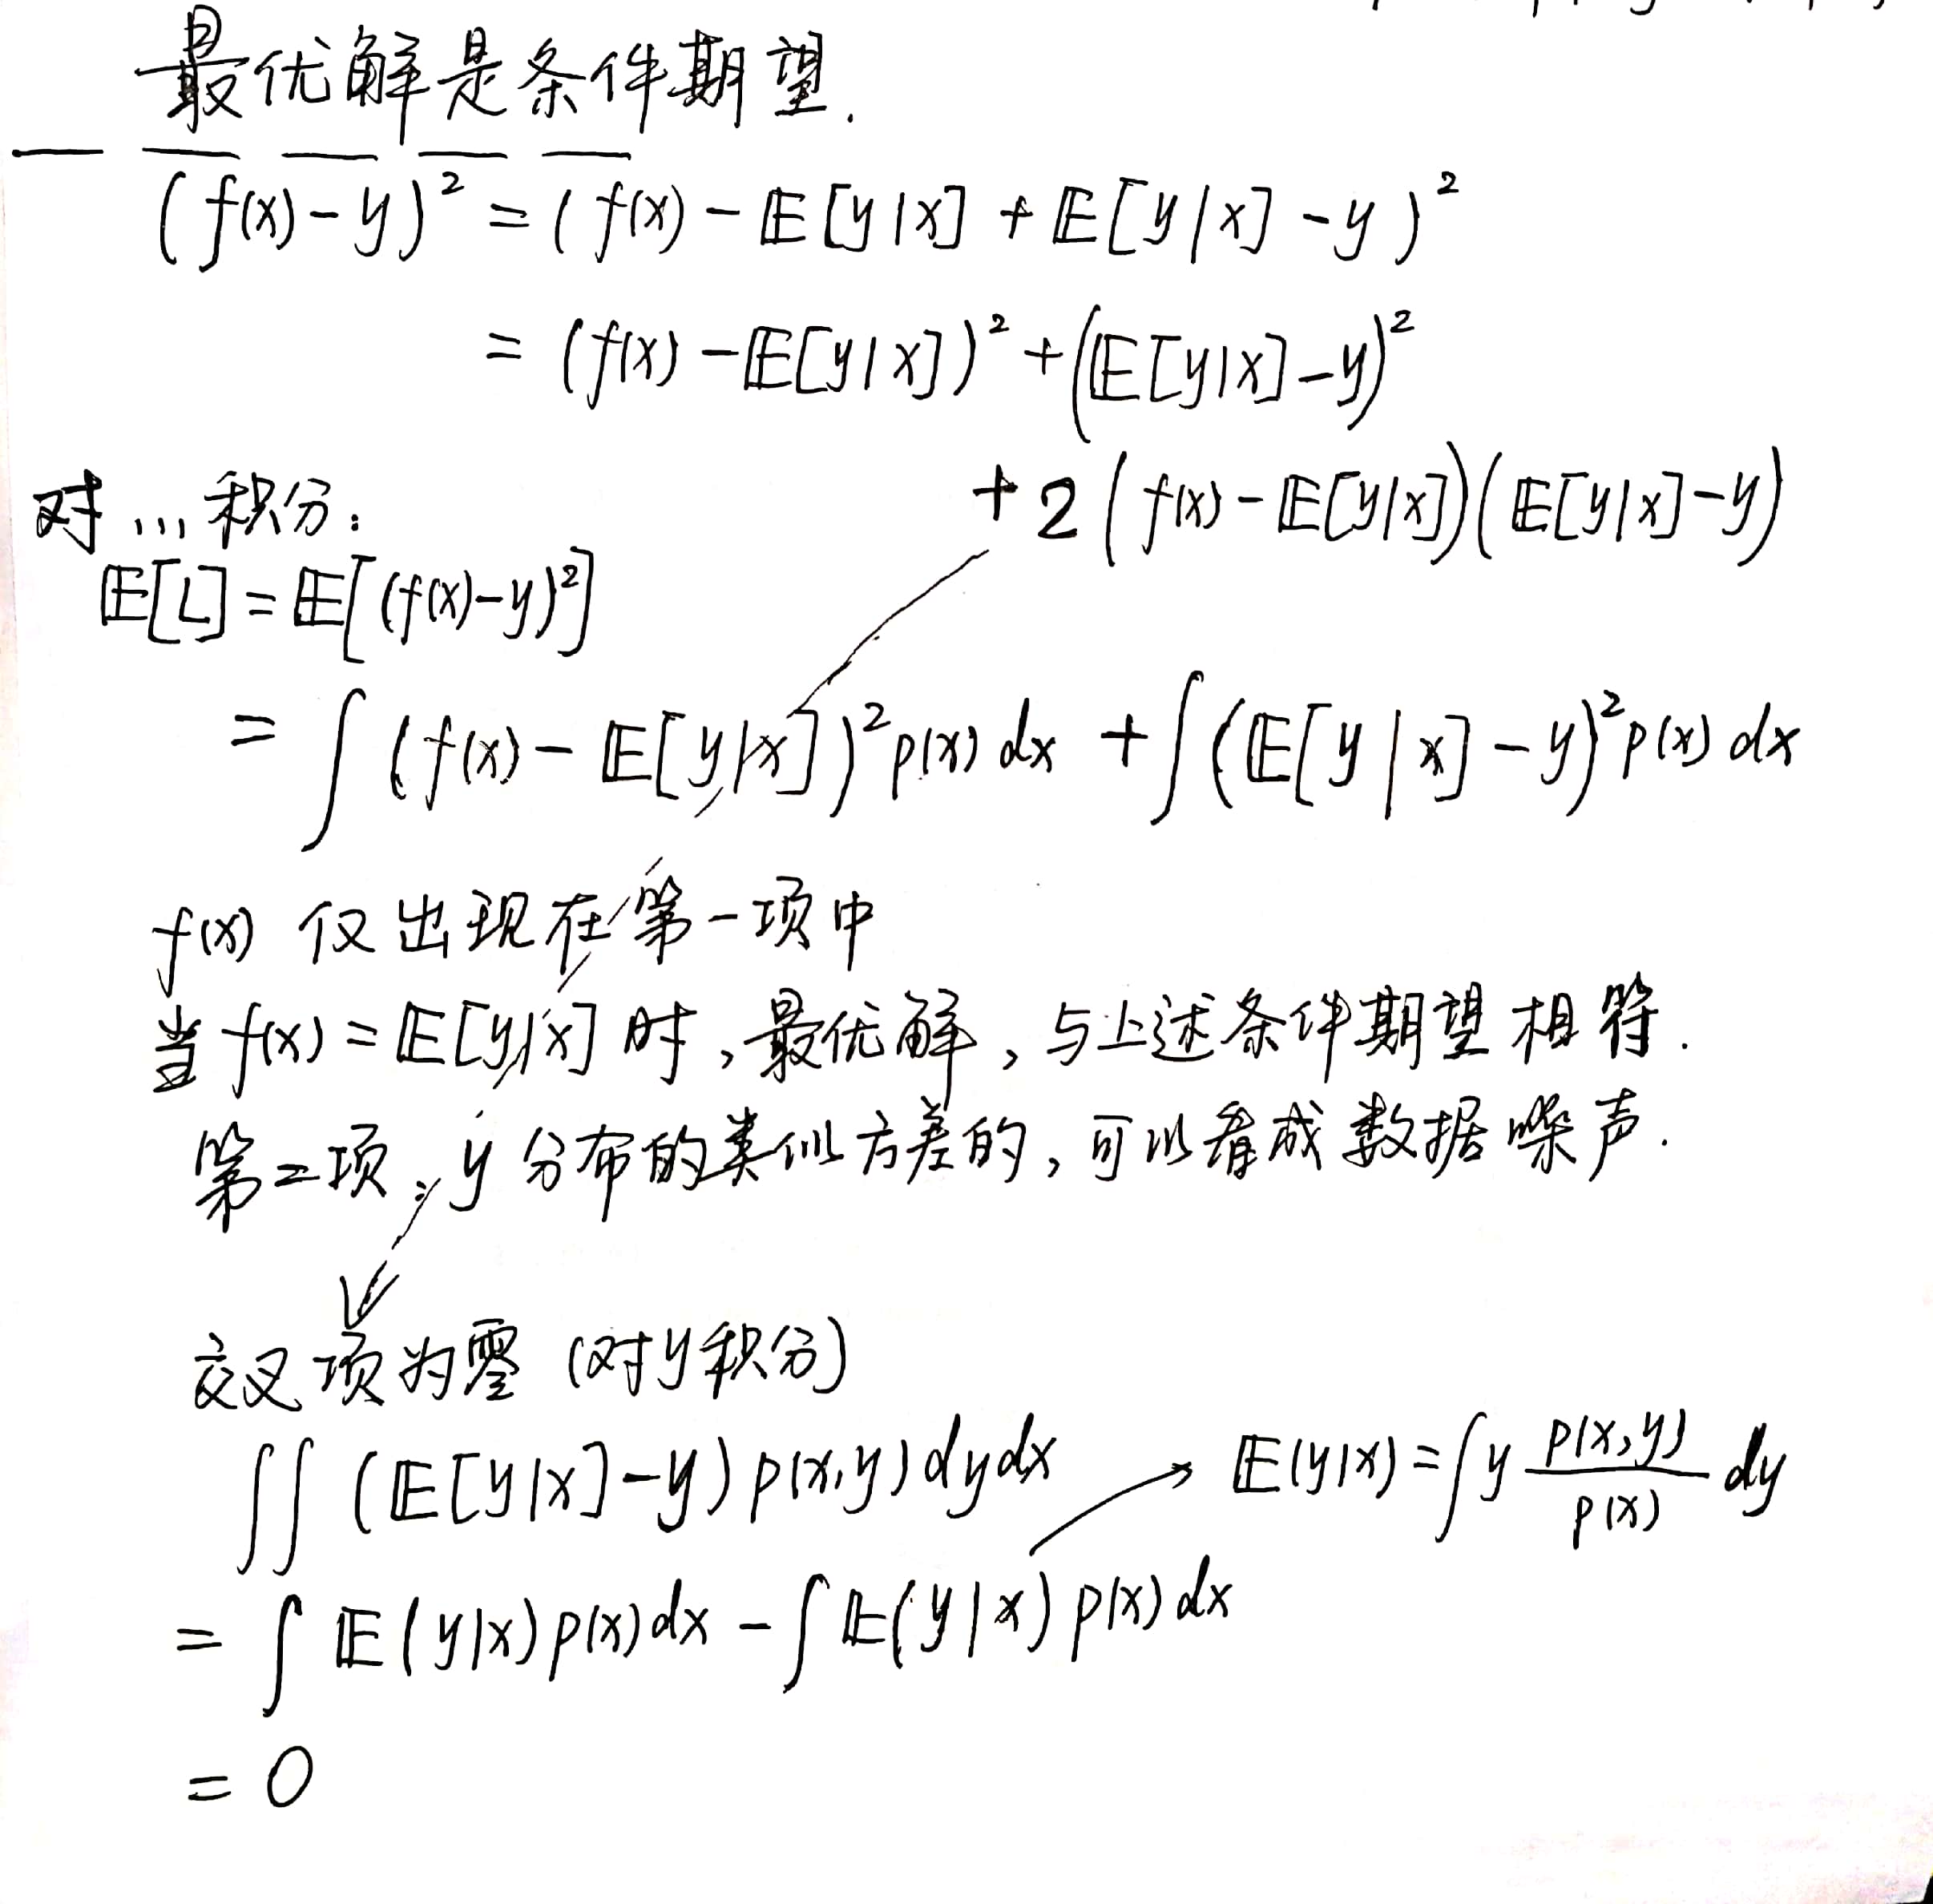 最优解是条件期望.
(f(x)-y)² = (f(x)-𝔼[y|x]+𝔼[y|x]-y)²
= (f(x)-𝔼[y|x])²+(𝔼[y|x]-y)²
+2(f(x)-𝔼[y|x])(𝔼[y|x]-y)
对...积分:
𝔼[L]=𝔼[(f(x)-y)²]
= ∫(f(x)-𝔼[y|x])²p(x)dx + ∫(𝔼[y|x]-y)²p(x)dx
f(x) 仅出现在第一项中
当f(x)=𝔼[y|x]时,最优解,与上述条件期望相符.
第二项:y分布的类似方差的,可以看成数据噪声.
交叉项为零(对y积分)
∫∫(𝔼[y|x]-y)p(x,y)dydx → 𝔼(y|x)=∫y p(x,y)/p(x) dy
= ∫𝔼(y|x)p(x)dx-∫𝔼(y|x)p(x)dx
= 0